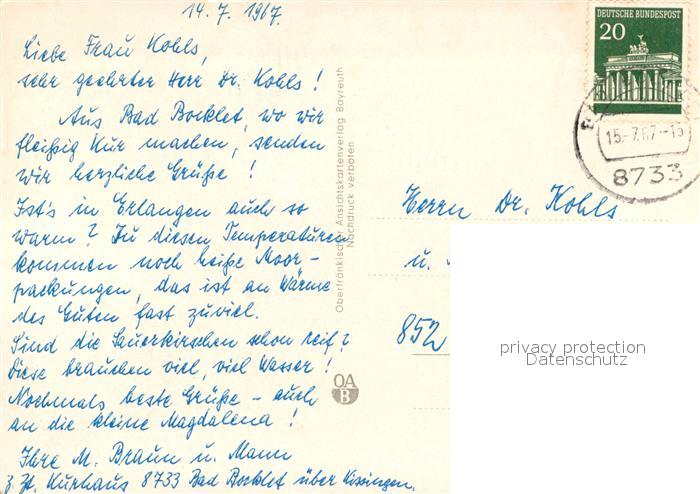 14. 7. 1967.
Liebe Frau Kohls,
sehr geehrter Herr Dr. Kohls!
Aus Bad Bocklet, wo wir
fleißig Kur machen, senden
wir herzliche Grüße!
Ist's in Erlangen auch so
warm? Zu diesen Temperaturen
kommen noch heiße Moor-
packungen, das ist an Wärme
des Guten fast zuviel.
Sind die Sauerkirschen schon reif?
Diese brauchen viel, viel Wasser!
Nochmals beste Grüße – auch
an die kleine Magdalena!
Ihre M. Braun u. Mann
z. Zt. Kurhaus 8733 Bad Bocklet über Kissingen.
Oberfränkischer Ansichtskartenverlag Bayreuth
Nachdruck verboten
OA
B
DEUTSCHE BUNDESPOST
20
15.-7.67-15
8733
Herrn Dr. Kohls
u.
852
privacy protection
Datenschutz